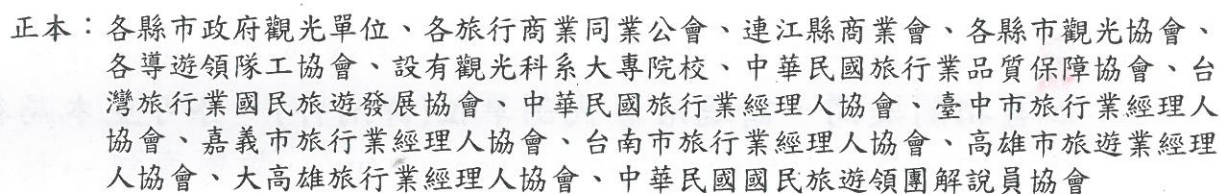 正本：各縣市政府觀光單位、各旅行商業同業公會、連江縣商業會、各縣市觀光協會、
各導遊領隊工協會、設有觀光科系大專院校、中華民國旅行業品質保障協會、台
灣旅行業國民旅遊發展協會、中華民國旅行業經理人協會、臺中市旅行業經理人
協會、嘉義市旅行業經理人協會、台南市旅行業經理人協會、高雄市旅遊業經理
人協會、大高雄旅行業經理人協會、中華民國國民旅遊領團解說員協會